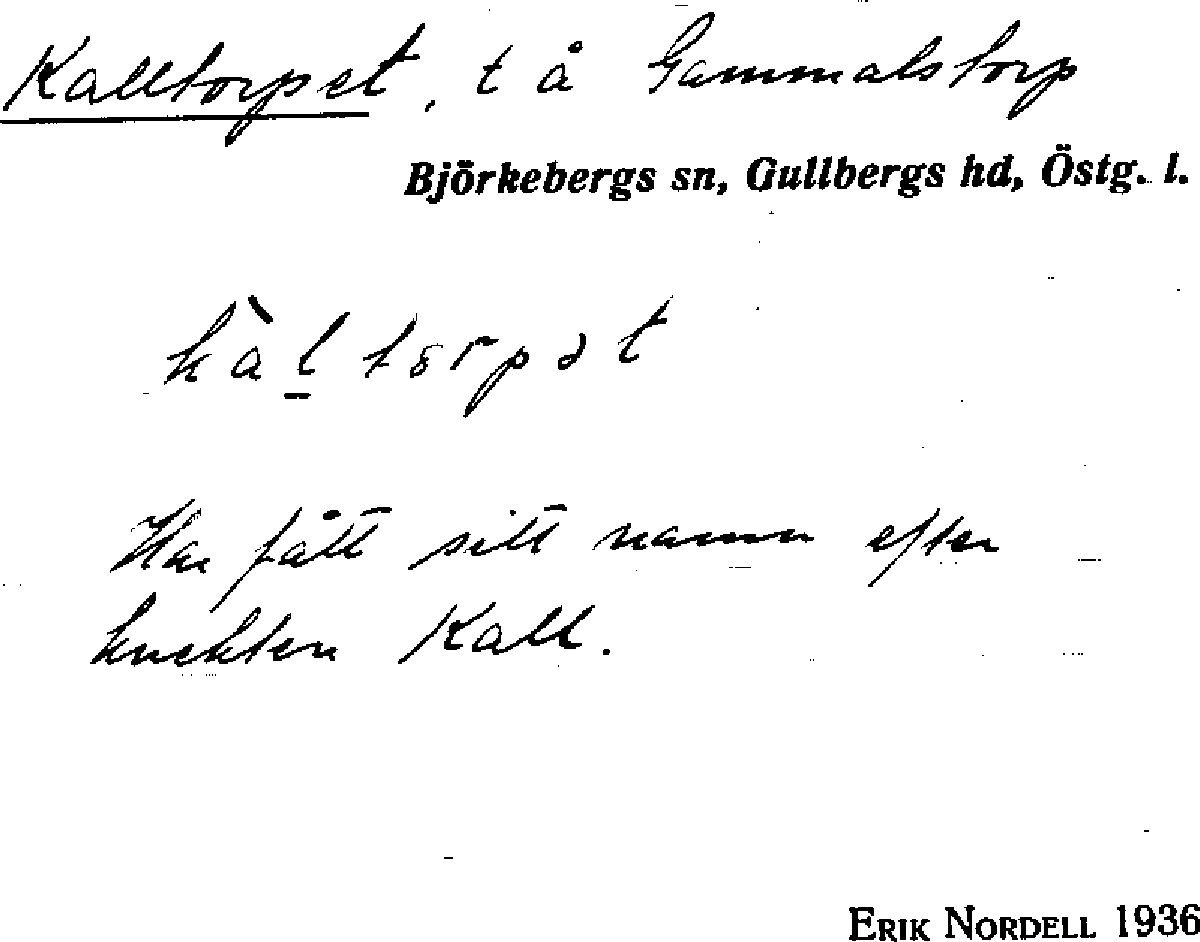 Kalltorpet, t å Gammalstorp
Björkebergs sn, Gullbergs hd, Östg. l.
kàl̠tɞrpət
Har fått sitt namn efter
knekten Kall.
ERIK NORDELL 1936